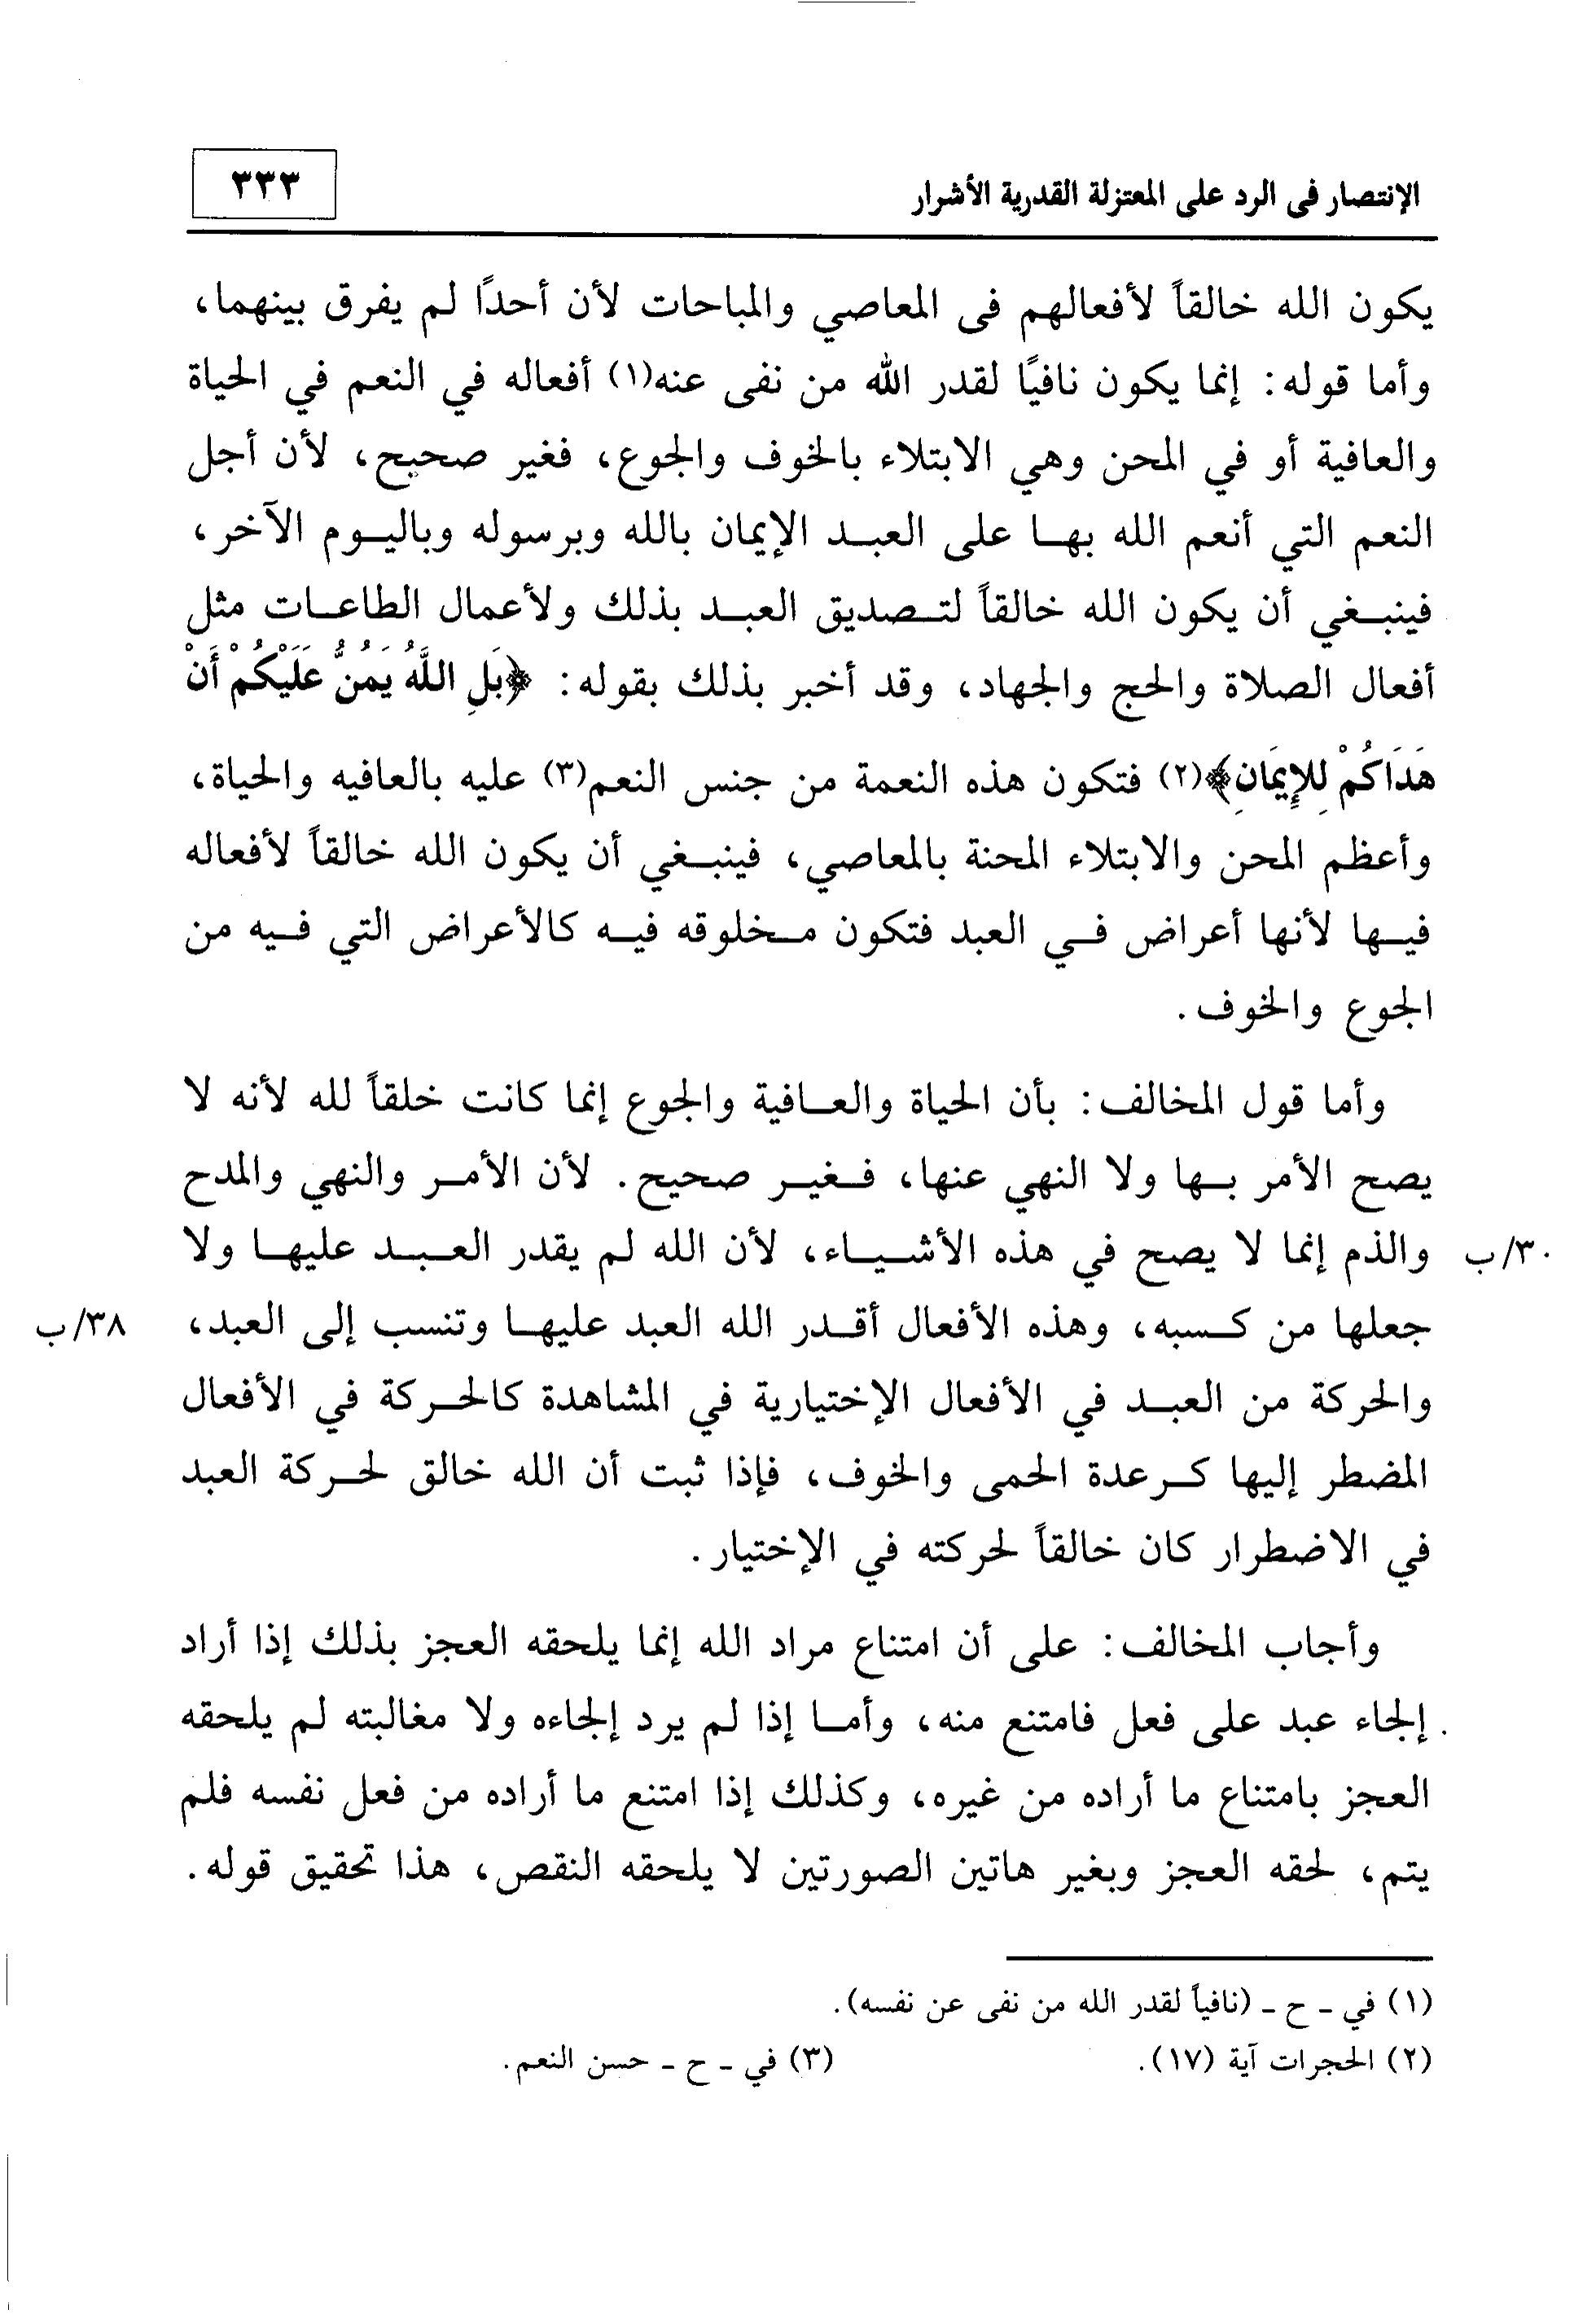 الإنتصار فى الرد على المعتزلة القدرية الأشرار
٣٣٣
يكون الله خالقاً لأفعالهم فى المعاصي والمباحات لأن أحدًا لم يفرق بينهما،
وأما قوله: إنما يكون نافيًا لقدر الله من نفى عنه(١) أفعاله في النعم في الحياة
والعافية أو في المحن وهي الابتلاء بالخوف والجوع، فغير صحيح، لأن أجل
النعم التي أنعم الله بهـا على العبـد الإيمان بالله وبرسوله وباليـوم الآخر،
فينبـغي أن يكون الله خالقاً لتـصديق العبـد بذلك ولأعمال الطاعـات مثل
أفعال الصلاة والحج والجهاد، وقد أخبر بذلك بقوله: ﴿بَلِ اللَّهُ يَمُنُّ عَلَيْكُمْ أَنْ
هَدَاكُمْ لِلإِيمَانِ﴾(٢) فتكون هذه النعمة من جنس النعم(٣) عليه بالعافيه والحياة،
وأعظم المحن والابتلاء المحنة بالمعاصي، فينبـغي أن يكون الله خالقاً لأفعاله
فيـها لأنها أعراض فـي العبد فتكون مـخلوقه فيـه كالأعراض التي فـيه من
الجوع والخوف.
وأما قول المخالف: بأن الحياة والعـافية والجوع إنما كانت خلقاً لله لأنه لا
يصح الأمر بـها ولا النهي عنها، فـغيـر صحيح. لأن الأمـر والنهي والمدح
والذم إنما لا يصح في هذه الأشـيـاء، لأن الله لم يقدر العـبـد عليهـا ولا
٣٠/ب
جعلها من كـسبه، وهذه الأفعال أقـدر الله العبد عليهـا وتنسب إلى العبد،
٣٨/ب
والحركة من العبـد في الأفعال الإختيارية في المشاهدة كالحـركة في الأفعال
المضطر إليها كـرعدة الحمى والخوف، فإذا ثبت أن الله خالق لحـركة العبد
في الاضطرار كان خالقاً لحركته في الإختيار.
وأجاب المخالف: على أن امتناع مراد الله إنما يلحقه العجز بذلك إذا أراد
إلجاء عبد على فعل فامتنع منه، وأمـا إذا لم يرد إلجاءه ولا مغالبته لم يلحقه
العجز بامتناع ما أراده من غيره، وكذلك إذا امتنع ما أراده من فعل نفسه فلم
يتم، لحقه العجز وبغير هاتين الصورتين لا يلحقه النقص، هذا تحقيق قوله.
(١) في ـ ح ـ (نافياً لقدر الله من نفى عن نفسه).
(٢) الحجرات آية (١٧). (٣) في ـ ح ـ حسن النعم.